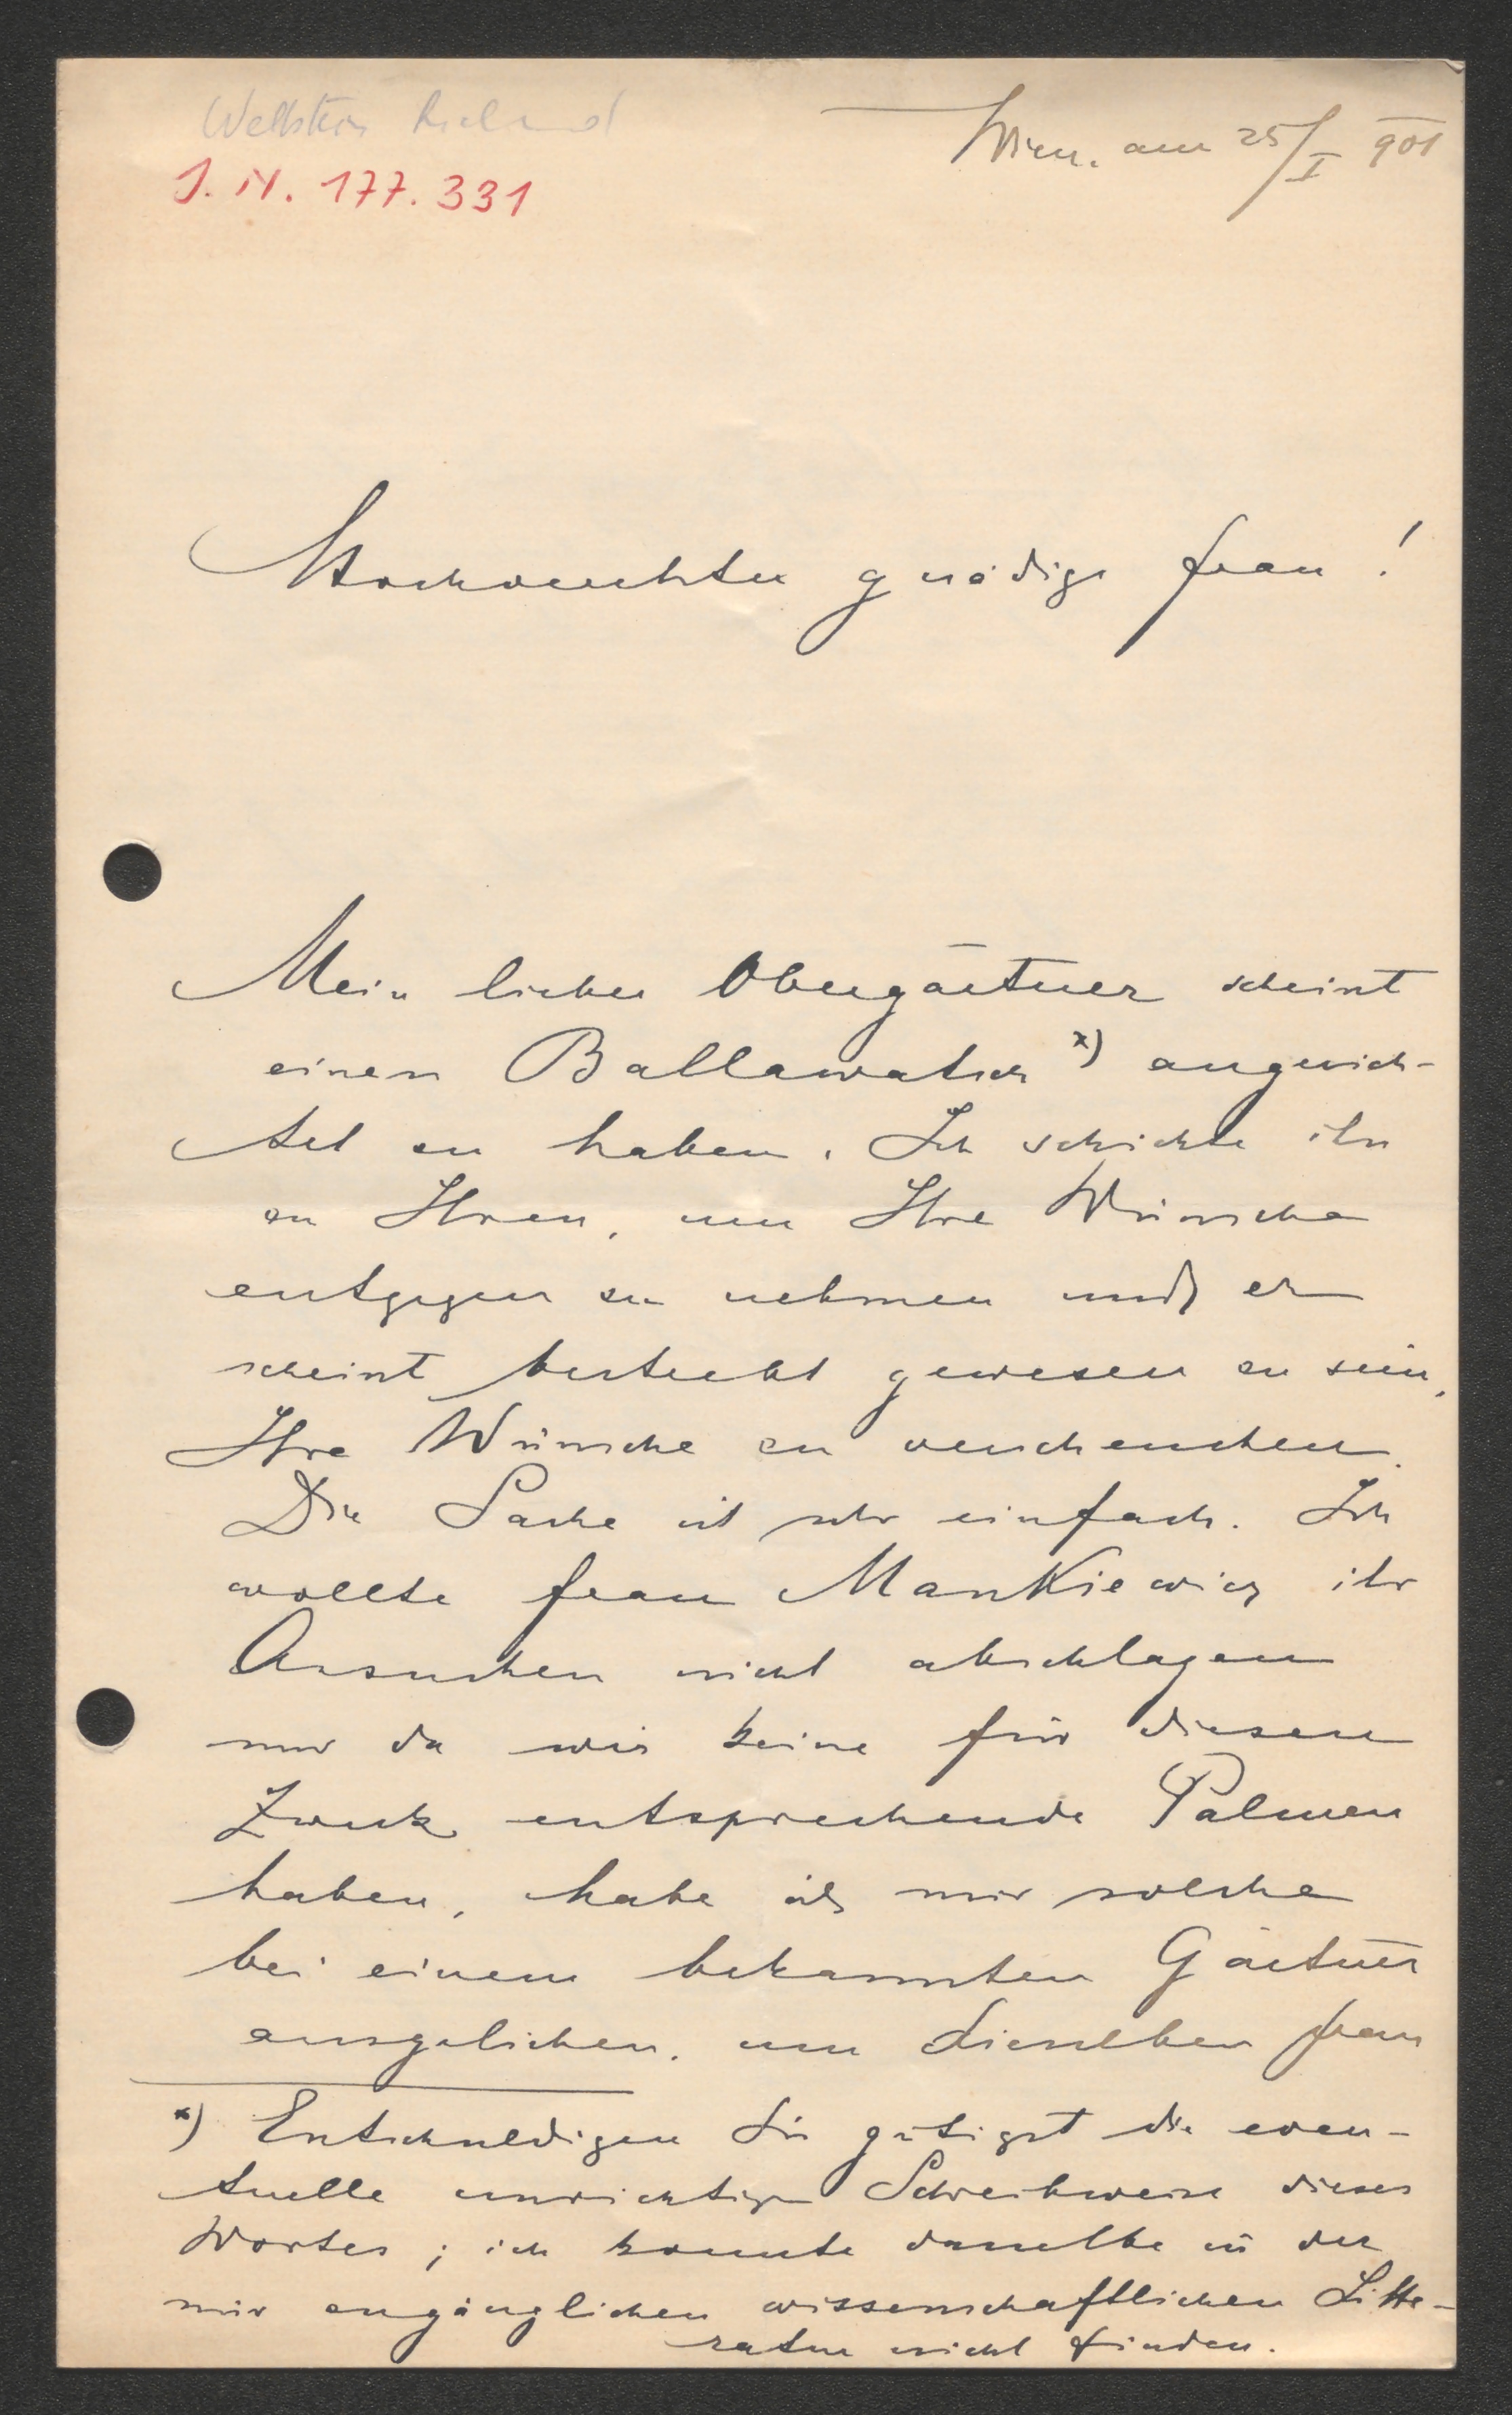 Wettstein Richard
J. N. 177.331
Wien. am 25/I 901
Hochverehrte gnädige Frau!
Mein lieber Obergärtner scheint
einen Ballawatsch x) angerich-
tet zu haben. Ich schickte ihn
zu Ihnen, um Ihre Wünsche
entgegen zu nehmen und er
scheint bestrebt gewesen zu sein,
Ihre Wünsche zu verscheuchen.
Die Sache ist sehr einfach. Ich
wollte Frau Mankiewicz ihr
Ansuchen nicht abschlagen
nur da wir keine für diesen
Zweck entsprechende Palmen
haben, habe ich mir solche
bei einem bekannten Gärtner
ausgeliehen, um dieselben Frau
x) Entschuldigen Sie gütigst die even-
tuelle unrichtige Schreibweise dieses
Wortes; ich konnte dasselbe in der
mir zugänglichen wissenschaftlichen Litte-
ratur nicht finden.